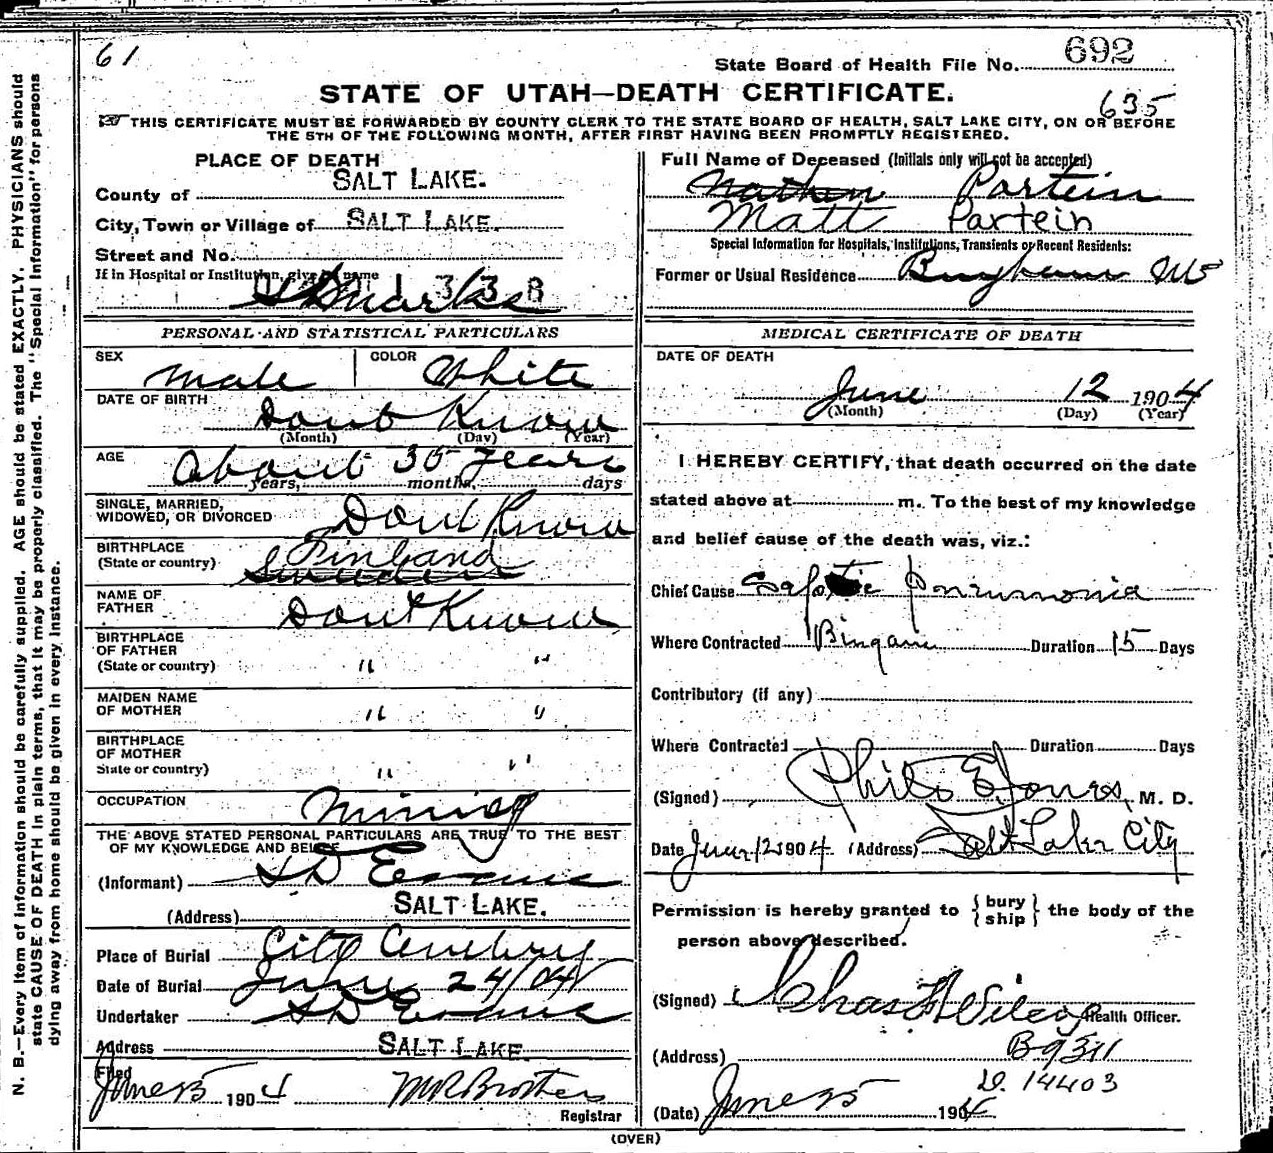 61
State Board of Health File No. 692
STATE OF UTAH—DEATH CERTIFICATE.
635
THIS CERTIFICATE MUST BE FORWARDED BY COUNTY CLERK TO THE STATE BOARD OF HEALTH, SALT LAKE CITY, ON OR BEFORE
THE 5TH OF THE FOLLOWING MONTH, AFTER FIRST HAVING BEEN PROMPTLY REGISTERED.
N. B.—Every item of information should be carefully supplied. AGE should be stated EXACTLY. PHYSICIANS should
state CAUSE OF DEATH in plain terms, that it may be properly classified. The "Special Information" for persons
dying away from home should be given in every instance.
PLACE OF DEATH
County of SALT LAKE.
City, Town or Village of SALT LAKE.
Street and No.
If in Hospital or Institution, give its name
1338
St Marks
PERSONAL AND STATISTICAL PARTICULARS
SEX Male COLOR White
DATE OF BIRTH Dont Know
(Month) (Day) (Year)
AGE About 35 years
years, months, days
SINGLE, MARRIED,
WIDOWED, OR DIVORCED Dont Know
BIRTHPLACE
(State or country) Finland
NAME OF
FATHER Dont Know
BIRTHPLACE
OF FATHER
(State or country) " "
MAIDEN NAME
OF MOTHER " "
BIRTHPLACE
OF MOTHER
State or country) " "
OCCUPATION Mining
THE ABOVE STATED PERSONAL PARTICULARS ARE TRUE TO THE BEST
OF MY KNOWLEDGE AND BELIEF
(Informant) S D Evans
(Address) SALT LAKE.
Place of Burial City Cemetery
Date of Burial June 24/04
Undertaker S D Evans
Address SALT LAKE.
Filed
June 25 1904
Registrar
Full Name of Deceased (Initials only will not be accepted)
Nathen Partein
Matt Partein
Special Information for Hospitals, Institutions, Transients or Recent Residents:
Former or Usual Residence Bingham
MEDICAL CERTIFICATE OF DEATH
DATE OF DEATH
June 12 1904
(Month) (Day) (Year)
I HEREBY CERTIFY, that death occurred on the date
stated above at m. To the best of my knowledge
and belief cause of the death was, viz.:
Chief Cause Septic Pneumonia
Where Contracted Bingam Duration 15 Days
Contributory (if any)
Where Contracted Duration Days
(Signed) Philo E Jones, M. D.
Date June 12 1904 (Address) Salt Lake City
Permission is hereby granted to {bury ship} the body of the
person above described.
(Signed) Chas Wilcox Health Officer.
(Address)
B 9311
D. 14403
(Date) June 25 1904
(OVER)